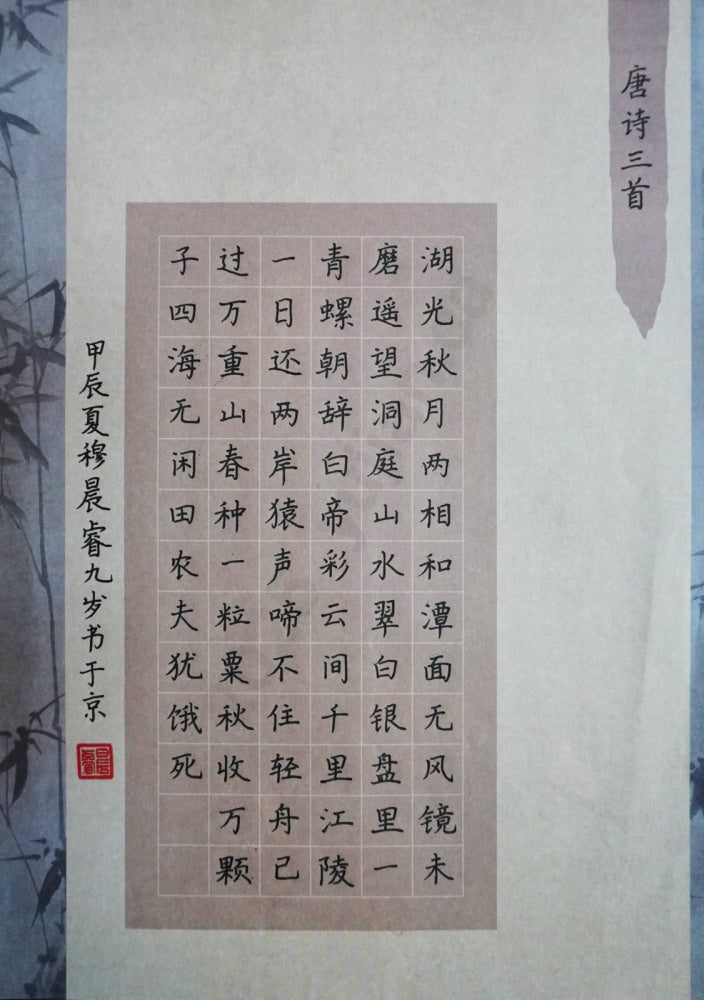 唐诗三首
湖光秋月两相和潭面无风镜未
磨遥望洞庭山水翠白银盘里一
青螺朝辞白帝彩云间千里江陵
一日还两岸猿声啼不住轻舟已
过万重山春种一粒粟秋收万颗
子四海无闲田农夫犹饿死
甲辰夏穆晨睿九岁书于京